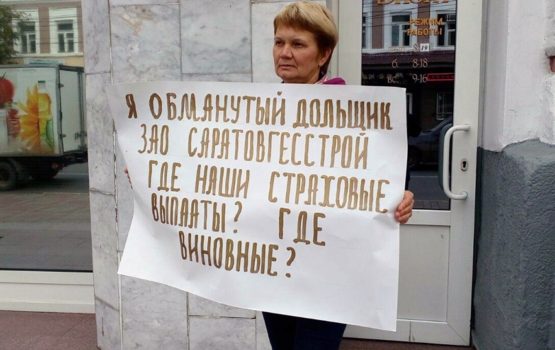 РЕЖИМ
РАБОТЫ
Я ОБМАНУТЫЙ ДОЛЬЩИК
ЗАО САРАТОВГЕССТРОЙ
ГДЕ НАШИ СТРАХОВЫЕ
ВЫПЛАТЫ? ГДЕ
ВИНОВНЫЕ?